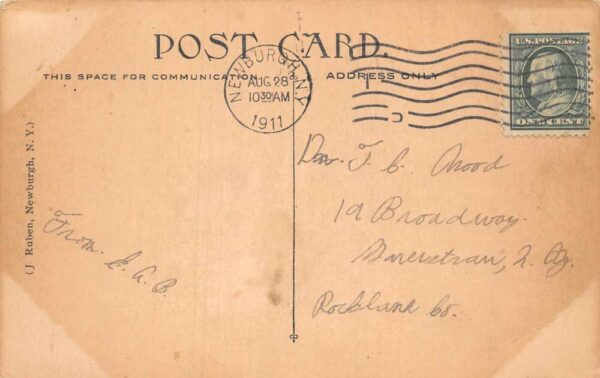 POST CARD.
THIS SPACE FOR COMMUNICATION
ADDRESS ONLY
NEWBURGH, N.Y.
AUG 28
10 30 AM
1911
U.S. POSTAGE
ONE CENT
(J Ruben, Newburgh, N. Y.)
From E. A. B.
T. C. Wood
19 Broadway.
Haverstraw, N. Y.
Rockland Co.